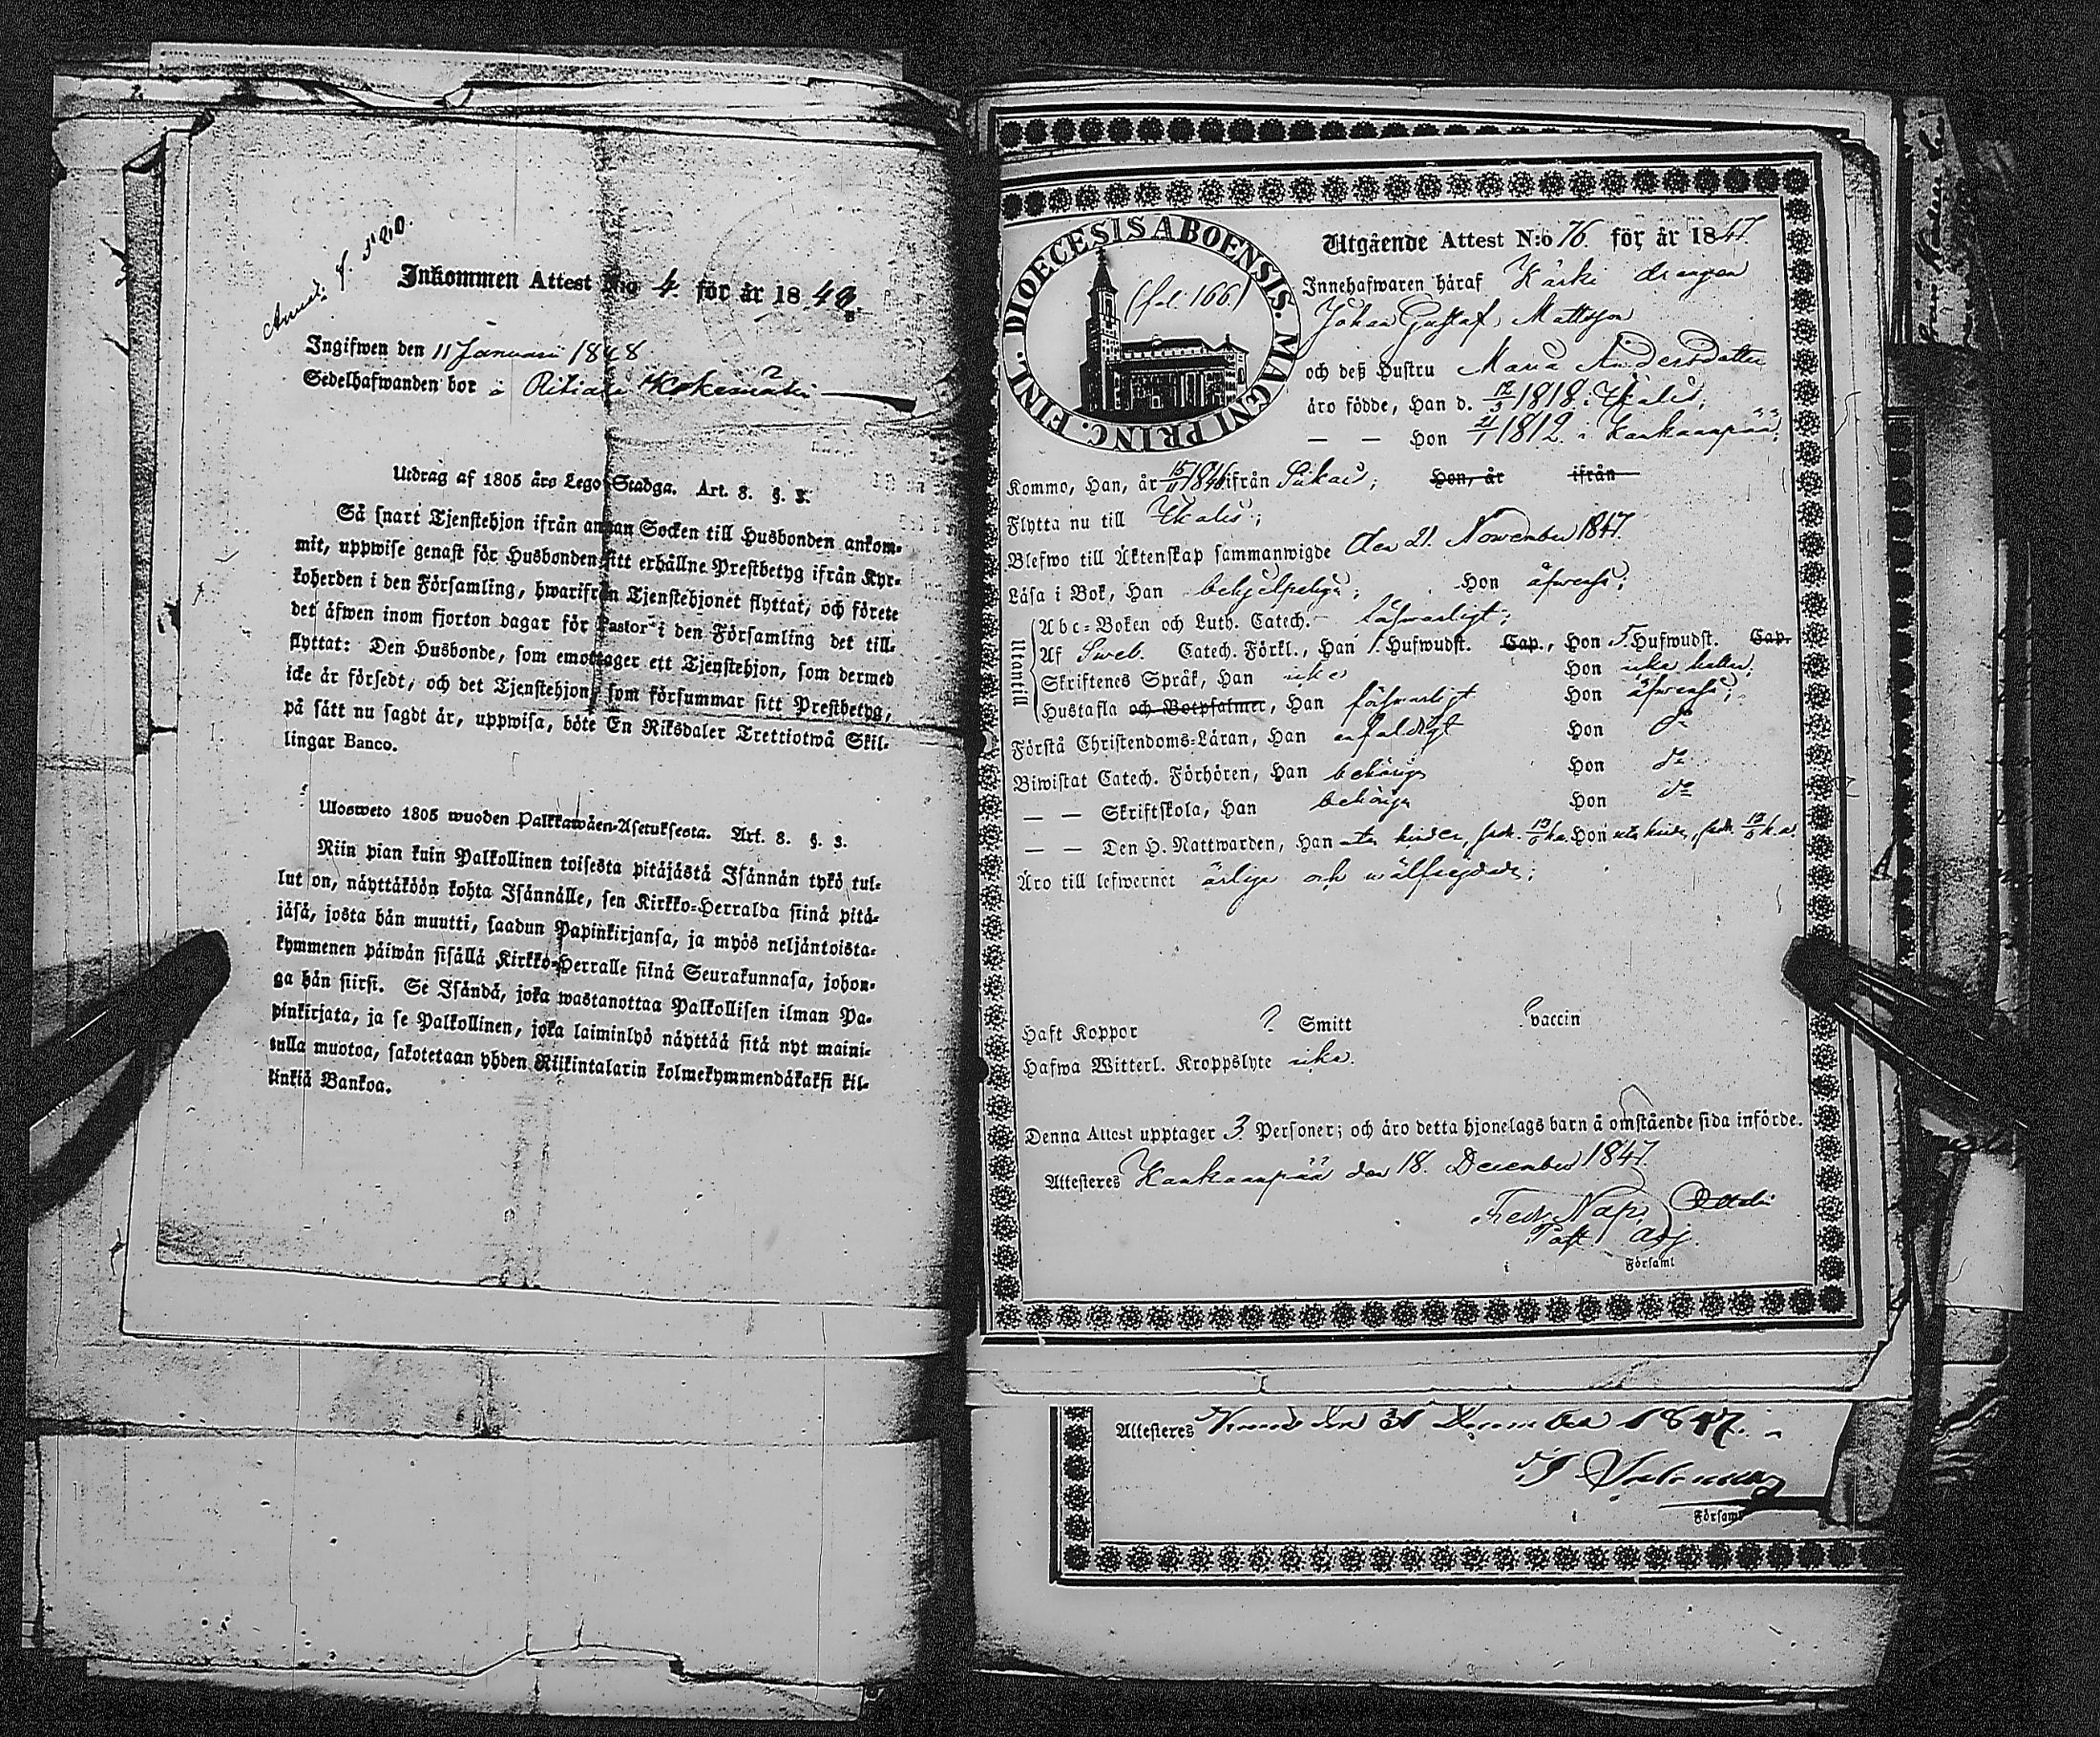 Inkommen Attest N:o 4. för år 1848.
Ingifwen den 11 Januarii 1848
Sedelhafwanden bor i
Utdrag af 1805 års Lego-Stadga. Art. 8. §. 3.
Så snart Tjenstehjon ifrån annan Socken till Husbonden ankom-
mit, uppwise genast för Husbonden sitt erhållne Prestbetyg ifrån Kyr-
koherden i den Församling, hwarifrån Tjenstehjonet flyttat, och förete
det äfwen inom fjorton dagar för Pastor i den Församling det till-
flyttat: Den Husbonde, som emottager ett Tjenstehjon, som dermed
icke är försedt, och det Tjenstehjon, som försummar sitt Prestbetyg,
på sätt nu sagdt är, uppwisa, böte En Riksdaler Trettiotwå Skil-
lingar Banco.
Ulosweto 1805 wuoden Palkkawäen-Asetuksesta. Art. 8. §. 3.
Niin pian kuin Palkollinen toisesta pitäjästä Isännän tykö tul-
lut on, näyttäköön kohta Isännälle, sen Kirkko-Herralda siinä pitä-
jäsä, josta hän muutti, saadun Papinkirjansa, ja myös neljäntoista-
kymmenen päiwän sisällä Kirkko-Herralle siinä Seurakunnasa, johon-
ga hän siirsi. Se Isändä, joka wastanottaa Palkollisen ilman Pa-
pinkirjata, ja se Palkollinen, joka laiminlyö näyttää sitä nyt maini-
tulla muotoa, sakotetaan yhden Riikintalarin kolmekymmendäkaksi kil-
linkiä Bankoa.
DIOECESIS ABOENSIS. MAGNI PRINC. FINL.
(fol. 166.)
Utgående Attest N:o 76. för år 1847.
Innehafwaren häraf Kärki drängen
Johan Gustaf Mattsson
och deß Hustru Maria Andersdotter
äro födde, Han d. 12/3 1818 i Ikalis;
— — Hon 21/1 1812 i Kankaanpää;
Kommo, Han, år 15/11 1846 ifrån Siikais; Hon, år ifrån
Flytta nu till Ikalis;
Blefwo till Äktenskap sammanwigde den 21. November 1847.
Läsa i Bok, Han behjelpeligen; Hon äfwenså;
Utantill
Abc-Boken och Luth. Catech. förswarligt;
Af Sweb. Catech. Förkl., Han 1. Hufwudst. Cap., Hon 5. Hufwudst. Cap.
Skriftenes Språk, Han icke Hon icke heller;
Hustafla och Botpsalmer, Han förswarligt Hon äfwenså;
Förstå Christendoms-Läran, Han enfaldigt Hon do
Biwistat Catech. Förhören, Han behörigen Hon do
— — Skriftskola, Han behörigen Hon do
— — Den H. Nattwarden, Han Hon
Äro till lefwernet ärliga och wälfregdade;
Haft Koppor ? Smitt ? vaccin
Hafwa Witterl. Kroppslyte icke.
Denna Attest upptager 3 Personer; och äro detta hjonelags barn å omstående sida införde.
Attesteres Kankaanpää den 18. December 1847.
Past. adj.
i Församl
Attesteres den 31 December 1847.
i Församl